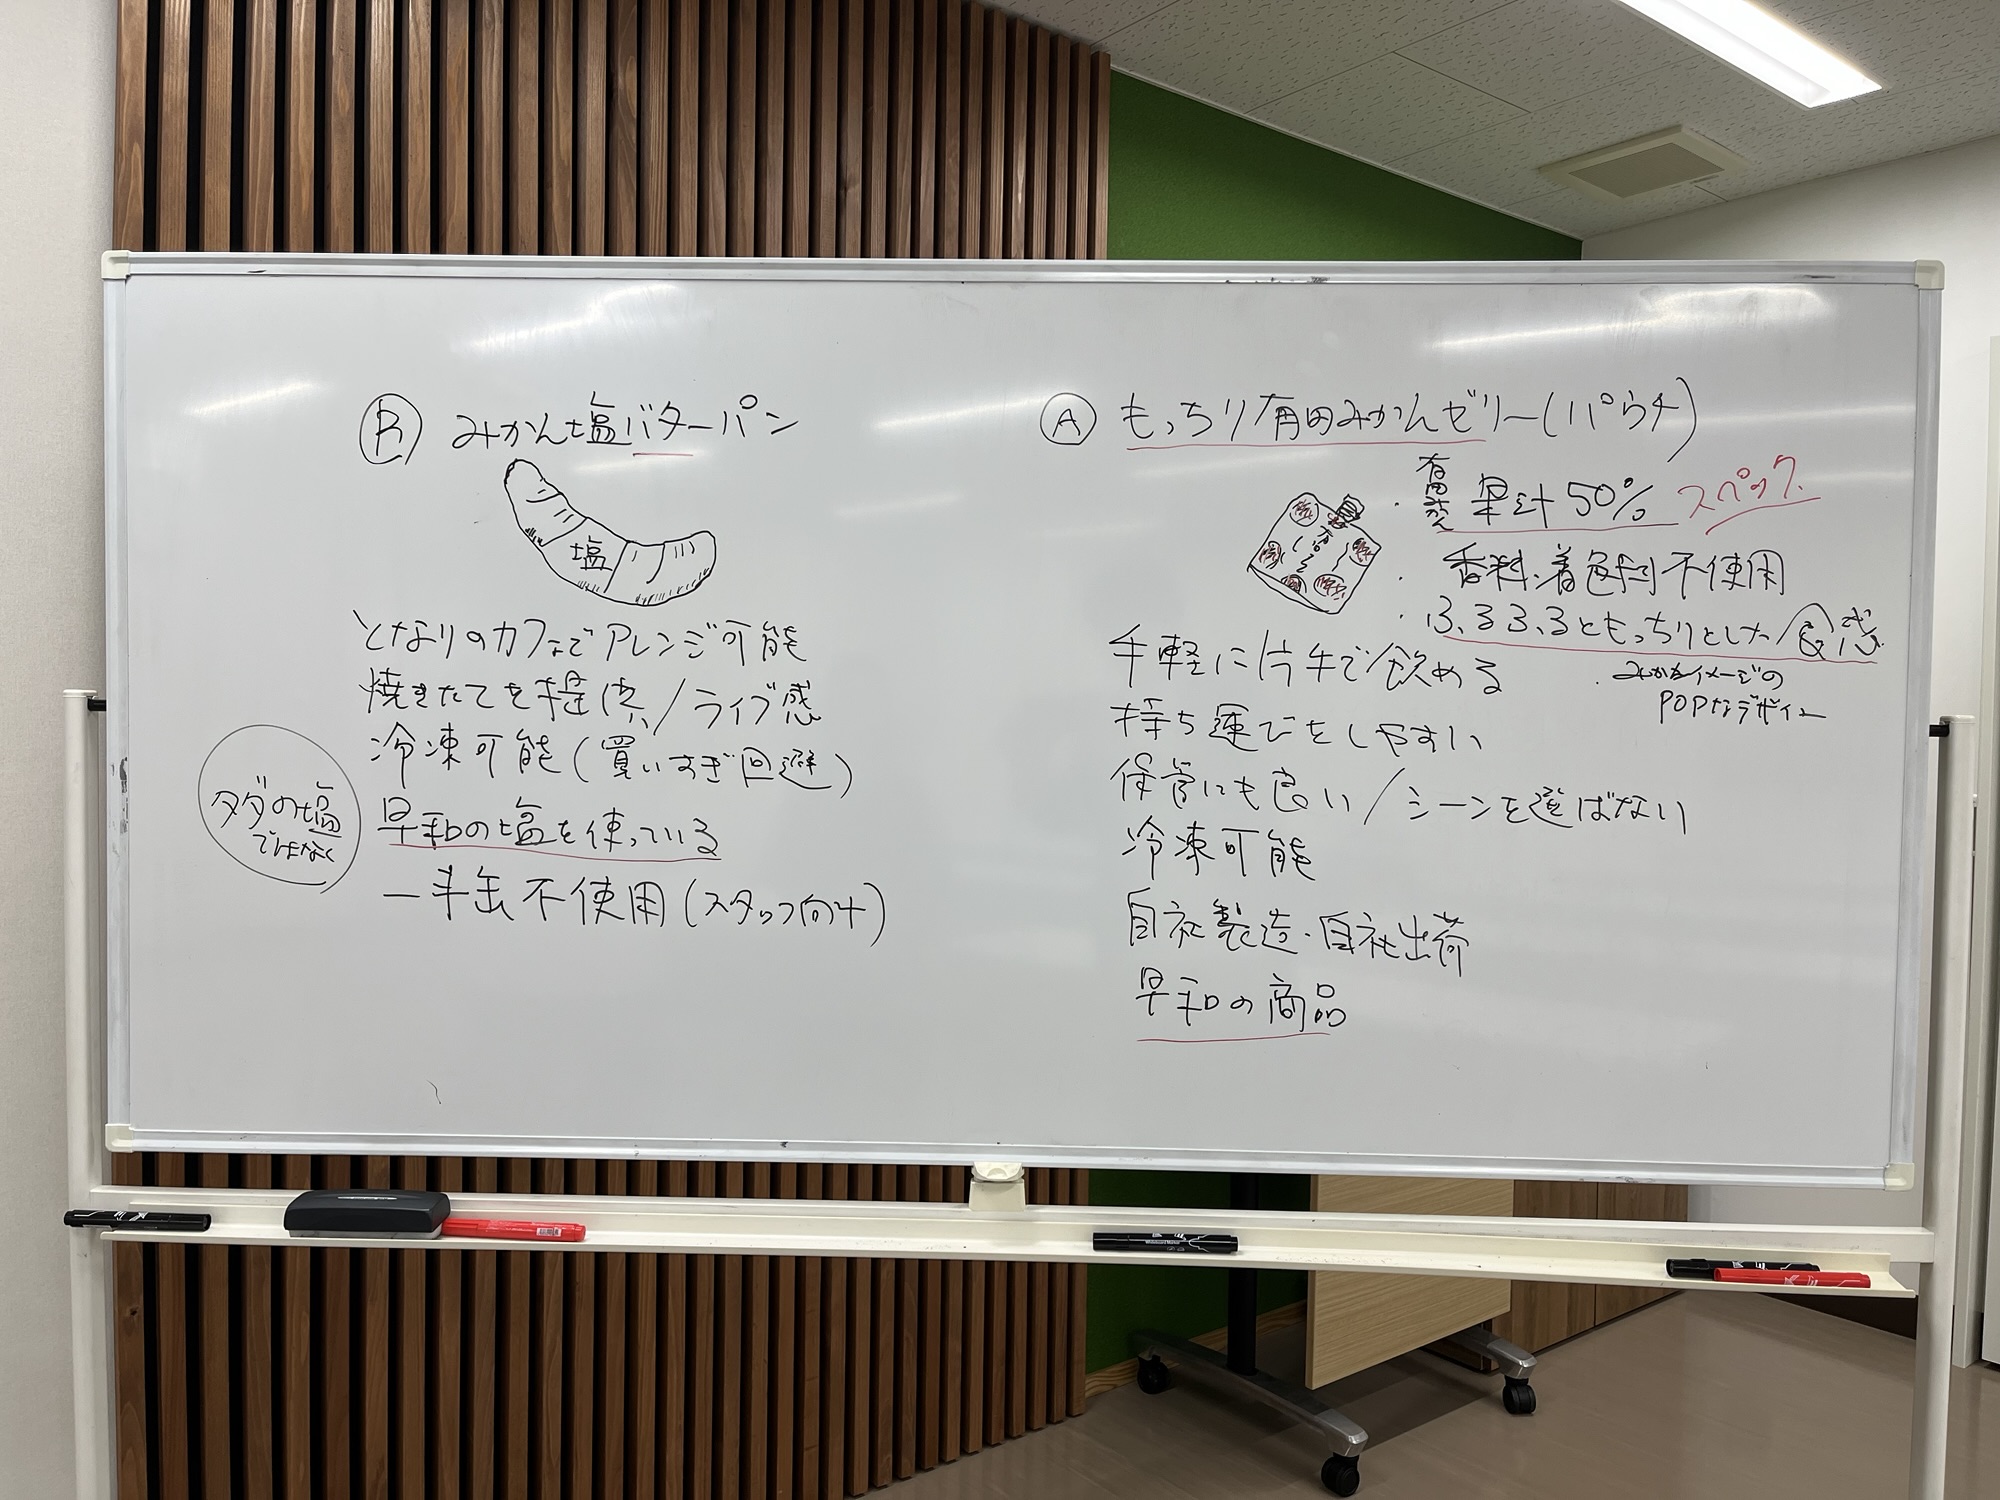 B みかん塩バターパン
塩
となりのカフェでアレンジ可能
焼きたてを提供/ライブ感
冷凍可能(買いすぎ回避)
タダの塩
ではなく
早和の塩を使っている
一斗缶不使用(スタッフ向け)
A もっちり有田みかんゼリー(パウチ)
・有田みかん 果汁50% スペック
・香料、着色料不使用
・ふるふるともっちりとした食感
・みかんイメージの
POPなデザイン
手軽に片手で飲める
持ち運びをしやすい
保管にも良い/シーンを選ばない
冷凍可能
自社製造・自社出荷
早和の商品